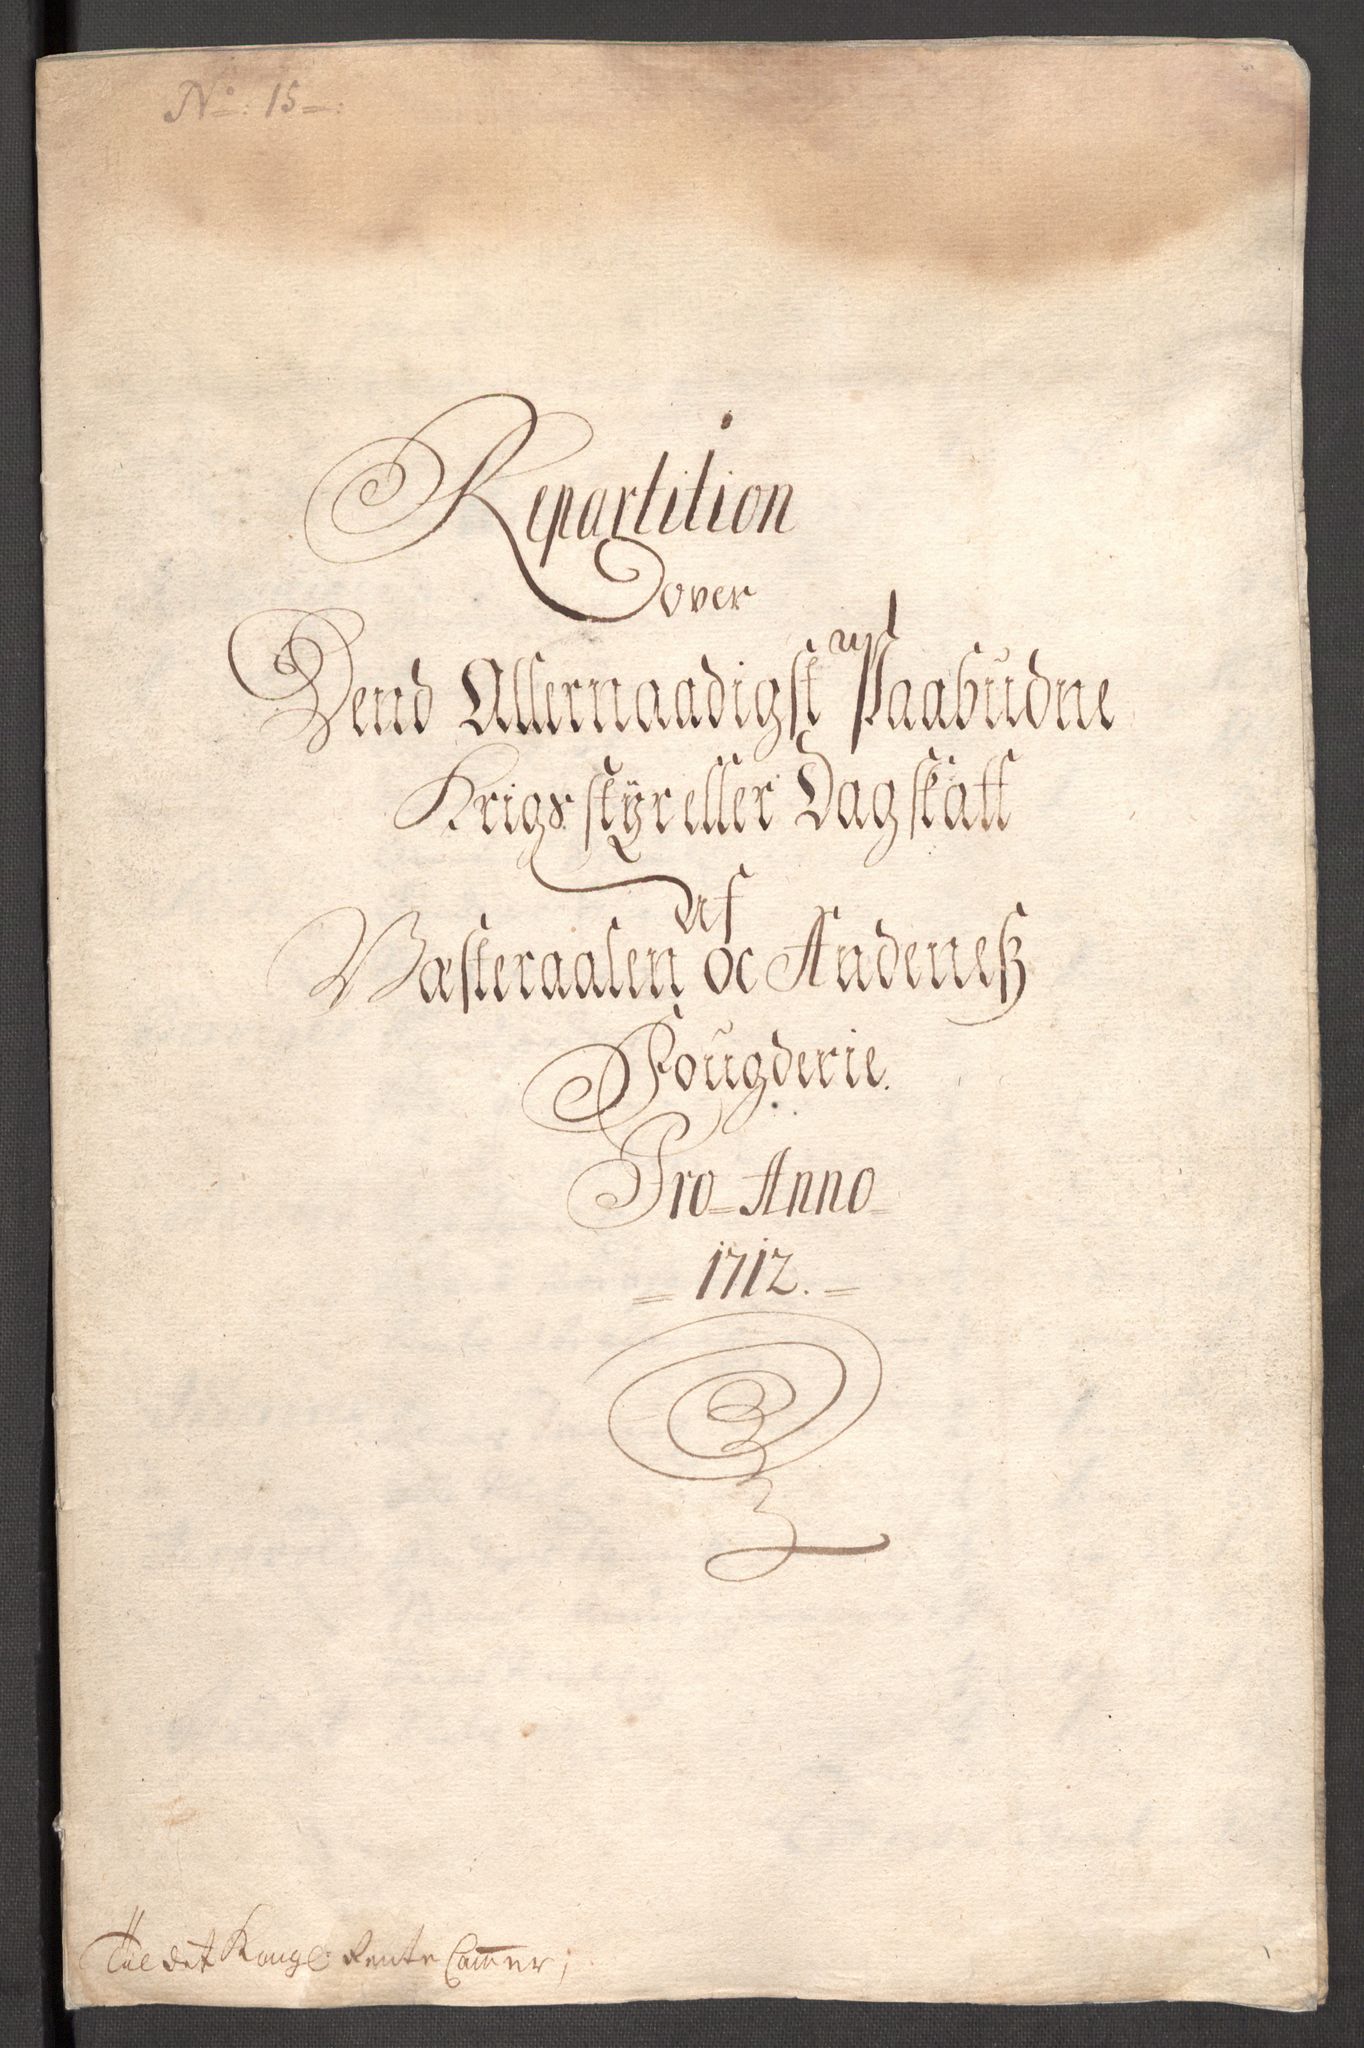 No: 15
Repartition
over
Dend Allernaadigst Paabudne
Krigs styr eller Dagskatt
Af
Væsteraalen oc Andeneß
Fougderie.
Pro Anno
1712.
Til det Kongl: Rente Cammer;